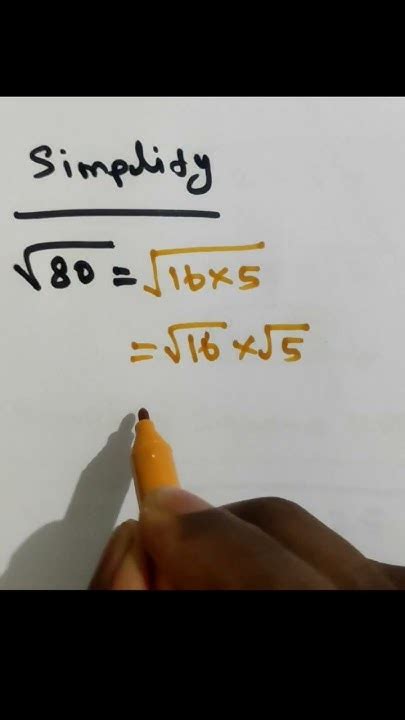 Simplify
√80 = √16×5
= √16 × √5